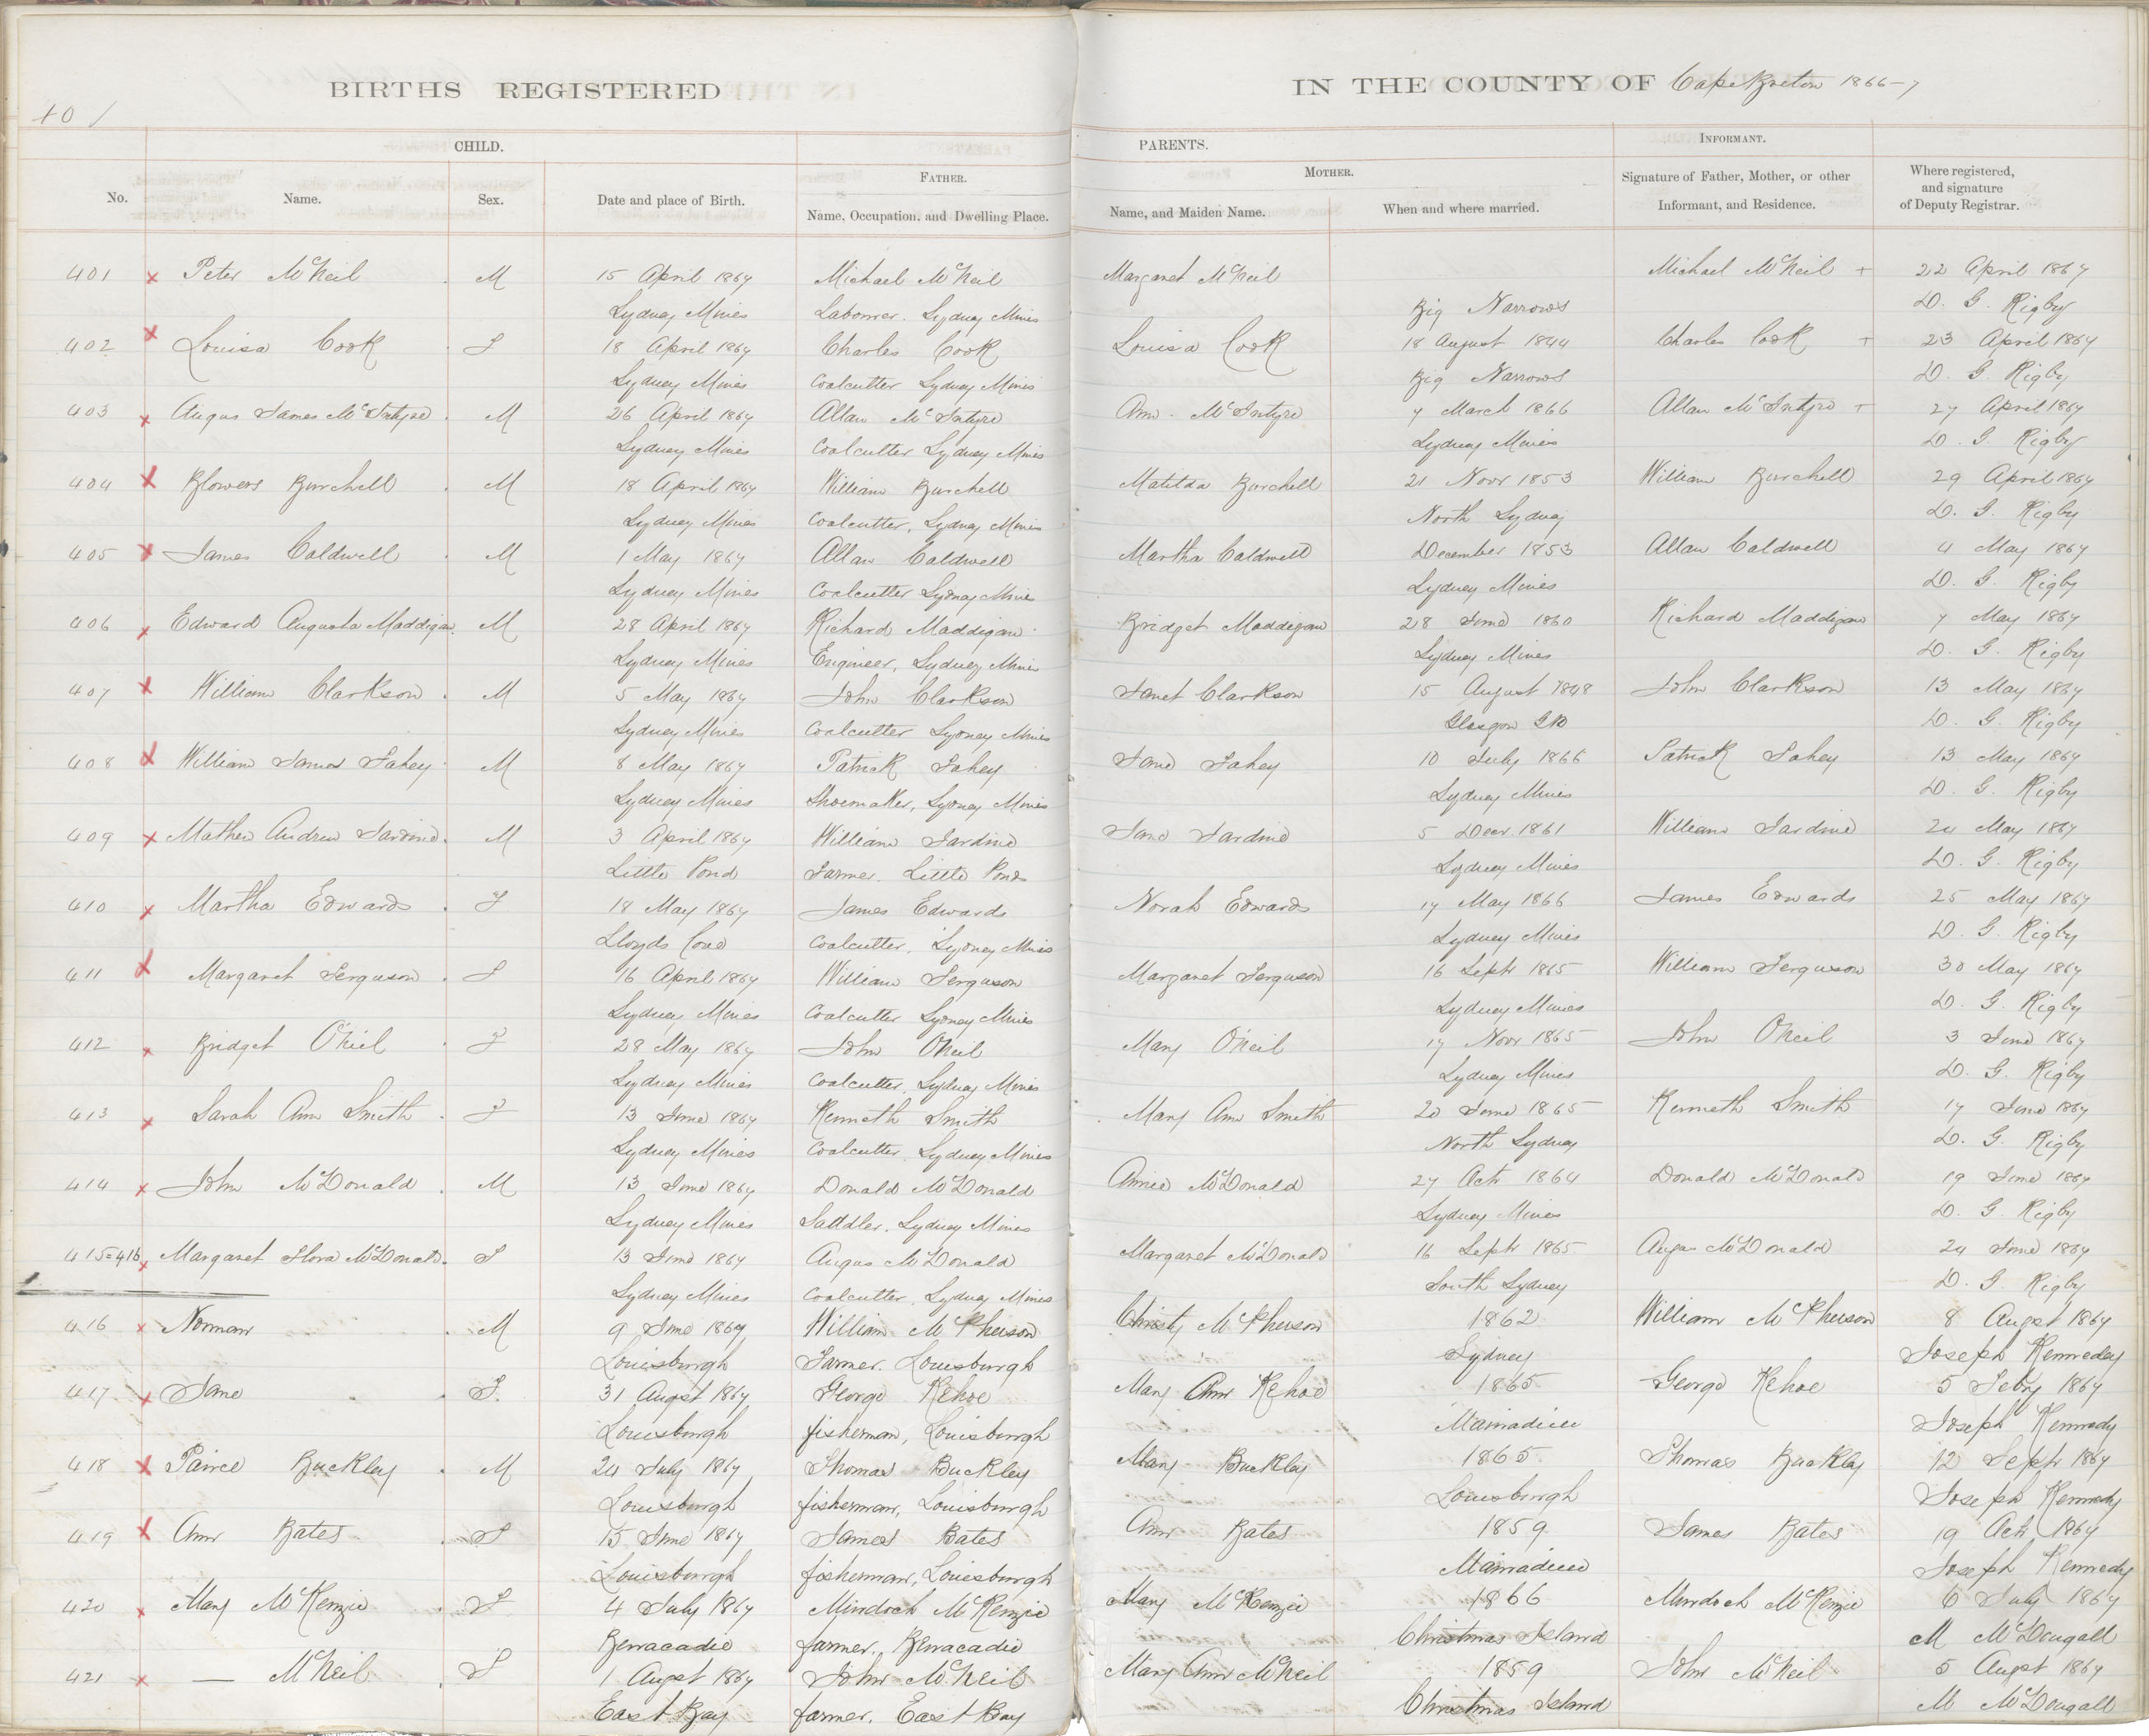 BIRTHS REGISTERED IN THE COUNTY OF Cape Breton 1866-7
401
CHILD. PARENTS. INFORMANT.
FATHER. MOTHER.
No. Name. Sex. Date and place of Birth. Name, Occupation, and Dwelling Place. Name, and Maiden Name. When and where married. Signature of Father, Mother, or other Informant, and Residence. Where registered, and signature of Deputy Registrar.
401 x Peter McNeil M 15 April 1867 Michael McNeil Margaret McNeil Michael McNeil + 22 April 1867
Sydney Mines Labourer. Sydney Mines Big Narrows D. G. Rigby
402 x Louisa Cook F 18 April 1867 Charles Cook Louisa Cook 18 August 1844 Charles Cook + 23 April 1867
Sydney Mines Coalcutter Sydney Mines Big Narrows D. G. Rigby
403 x Angus James McIntyre M 26 April 1867 Allan McIntyre Ann McIntyre 7 March 1866 Allan McIntyre + 27 April 1867
Sydney Mines Coalcutter Sydney Mines Sydney Mines D. G. Rigby
404 x Blowers Burchell M 18 April 1867 William Burchell Matilda Burchell 21 Novr 1853 William Burchell 29 April 1867
Sydney Mines Coalcutter, Sydney Mines North Sydney D. G. Rigby
405 x James Caldwell M 1 May 1867 Allan Caldwell Martha Caldwell December 1853 Allan Caldwell 4 May 1867
Sydney Mines Coalcutter Sydney Mines Sydney Mines D. G. Rigby
406 x Edward Augusta Maddigan M 28 April 1867 Richard Maddigan Bridget Maddigan 28 June 1860 Richard Maddigan 7 May 1867
Sydney Mines Engineer, Sydney Mines Sydney Mines D. G. Rigby
407 x William Clarkson M 5 May 1867 John Clarkson Janet Clarkson 15 August 1848 John Clarkson 13 May 1867
Sydney Mines Coalcutter Sydney Mines Glasgow GB D. G. Rigby
408 x William James Fahey M 8 May 1867 Patrick Fahey Jane Fahey 10 July 1866 Patrick Fahey 13 May 1867
Sydney Mines Shoemaker, Sydney Mines Sydney Mines D. G. Rigby
409 x Mathew Andrew Jardine M 3 April 1867 William Jardine Jane Jardine 5 Decr 1861 William Jardine 24 May 1867
Little Pond Farmer. Little Pond Sydney Mines D. G. Rigby
410 x Martha Edwards F 18 May 1867 James Edwards Norah Edwards 17 May 1866 James Edwards 25 May 1867
Lloyds Cove Coalcutter, Sydney Mines Sydney Mines D. G. Rigby
411 x Margaret Ferguson F 16 April 1867 William Ferguson Margaret Ferguson 16 Septr 1865 William Ferguson 30 May 1867
Sydney Mines Coalcutter Sydney Mines Sydney Mines D. G. Rigby
412 x Bridget O'Neil F 28 May 1867 John O'Neil Mary O'Neil 17 Novr 1865 John O'Neil 3 June 1867
Sydney Mines Coalcutter, Sydney Mines Sydney Mines D. G. Rigby
413 x Sarah Ann Smith F 13 June 1867 Kenneth Smith Mary Ann Smith 20 June 1865 Kenneth Smith 17 June 1867
Sydney Mines Coalcutter, Sydney Mines North Sydney D. G. Rigby
414 x John McDonald M 13 June 1867 Donald McDonald Annie McDonald 27 Octr 1864 Donald McDonald 19 June 1867
Sydney Mines Saddler, Sydney Mines Sydney Mines D. G. Rigby
415=416 x Margaret Flora McDonald F 13 June 1867 Angus McDonald Margaret McDonald 16 Septr 1865 Angus McDonald 24 June 1867
Sydney Mines Coalcutter, Sydney Mines South Sydney D. G. Rigby
416 x Norman M 9 June 1867 William McPherson Christy McPherson 1862 William McPherson 8 Augst 1867
Louisburgh Farmer. Louisburgh Sydney Joseph Kennedy
417 x Jane F. 31 Augst 1867 George Kehoe Mary Ann Kehoe 1865 George Kehoe 5 Feby 1867
Louisburgh fisherman, Louisburgh Mainadieu Joseph Kennedy
418 x Pairce Buckley M 24 July 1867 Thomas Buckley Mary Buckley 1865 Thomas Buckley 12 Septr 1867
Louisburgh fisherman, Louisburgh Louisburgh Joseph Kennedy
419 x Ann Bates F 15 June 1867 James Bates Ann Bates 1859 James Bates 19 Octr 1867
Louisburgh fisherman, Louisburgh Mainadieu Joseph Kennedy
420 x Mary McKenzie F 4 July 1867 Murdoch McKenzie Mary McKenzie 1866 Murdoch McKenzie 6 July 1867
Benacadie farmer, Benacadie Christmas Island M McDougall
421 x — McNeil F 1 Augst 1867 John McNeil Mary Ann McNeil 1859 John McNeil 5 Augst 1867
East Bay farmer, East Bay Christmas Island M McDougall